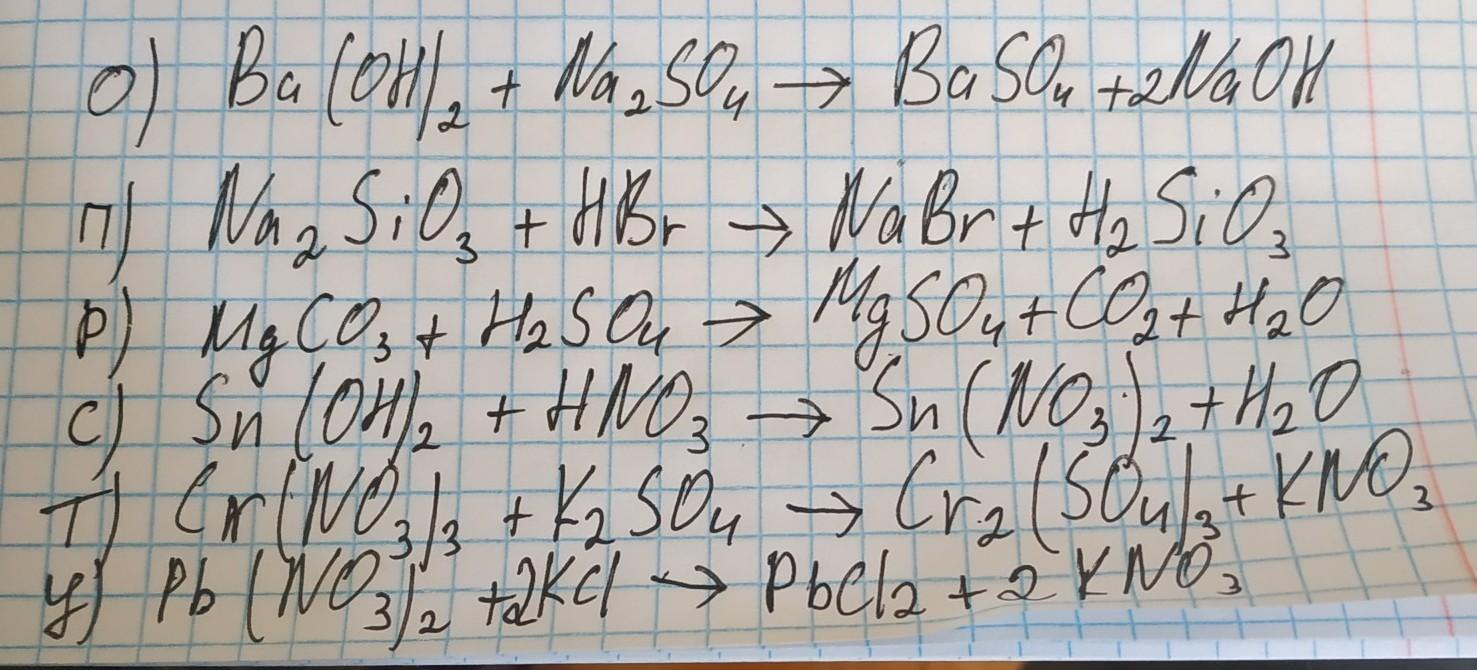 О) Ba(OH)₂ + Na₂SO₄ → BaSO₄ + 2NaOH
П) Na₂SiO₃ + HBr → NaBr + H₂SiO₃
Р) MgCO₃ + H₂SO₄ → MgSO₄ + CO₂ + H₂O
С) Sn(OH)₂ + HNO₃ → Sn(NO₃)₂ + H₂O
Т) Cr(NO₃)₃ + K₂SO₄ → Cr₂(SO₄)₃ + KNO₃
У) Pb(NO₃)₂ + 2KCl → PbCl₂ + 2KNO₃